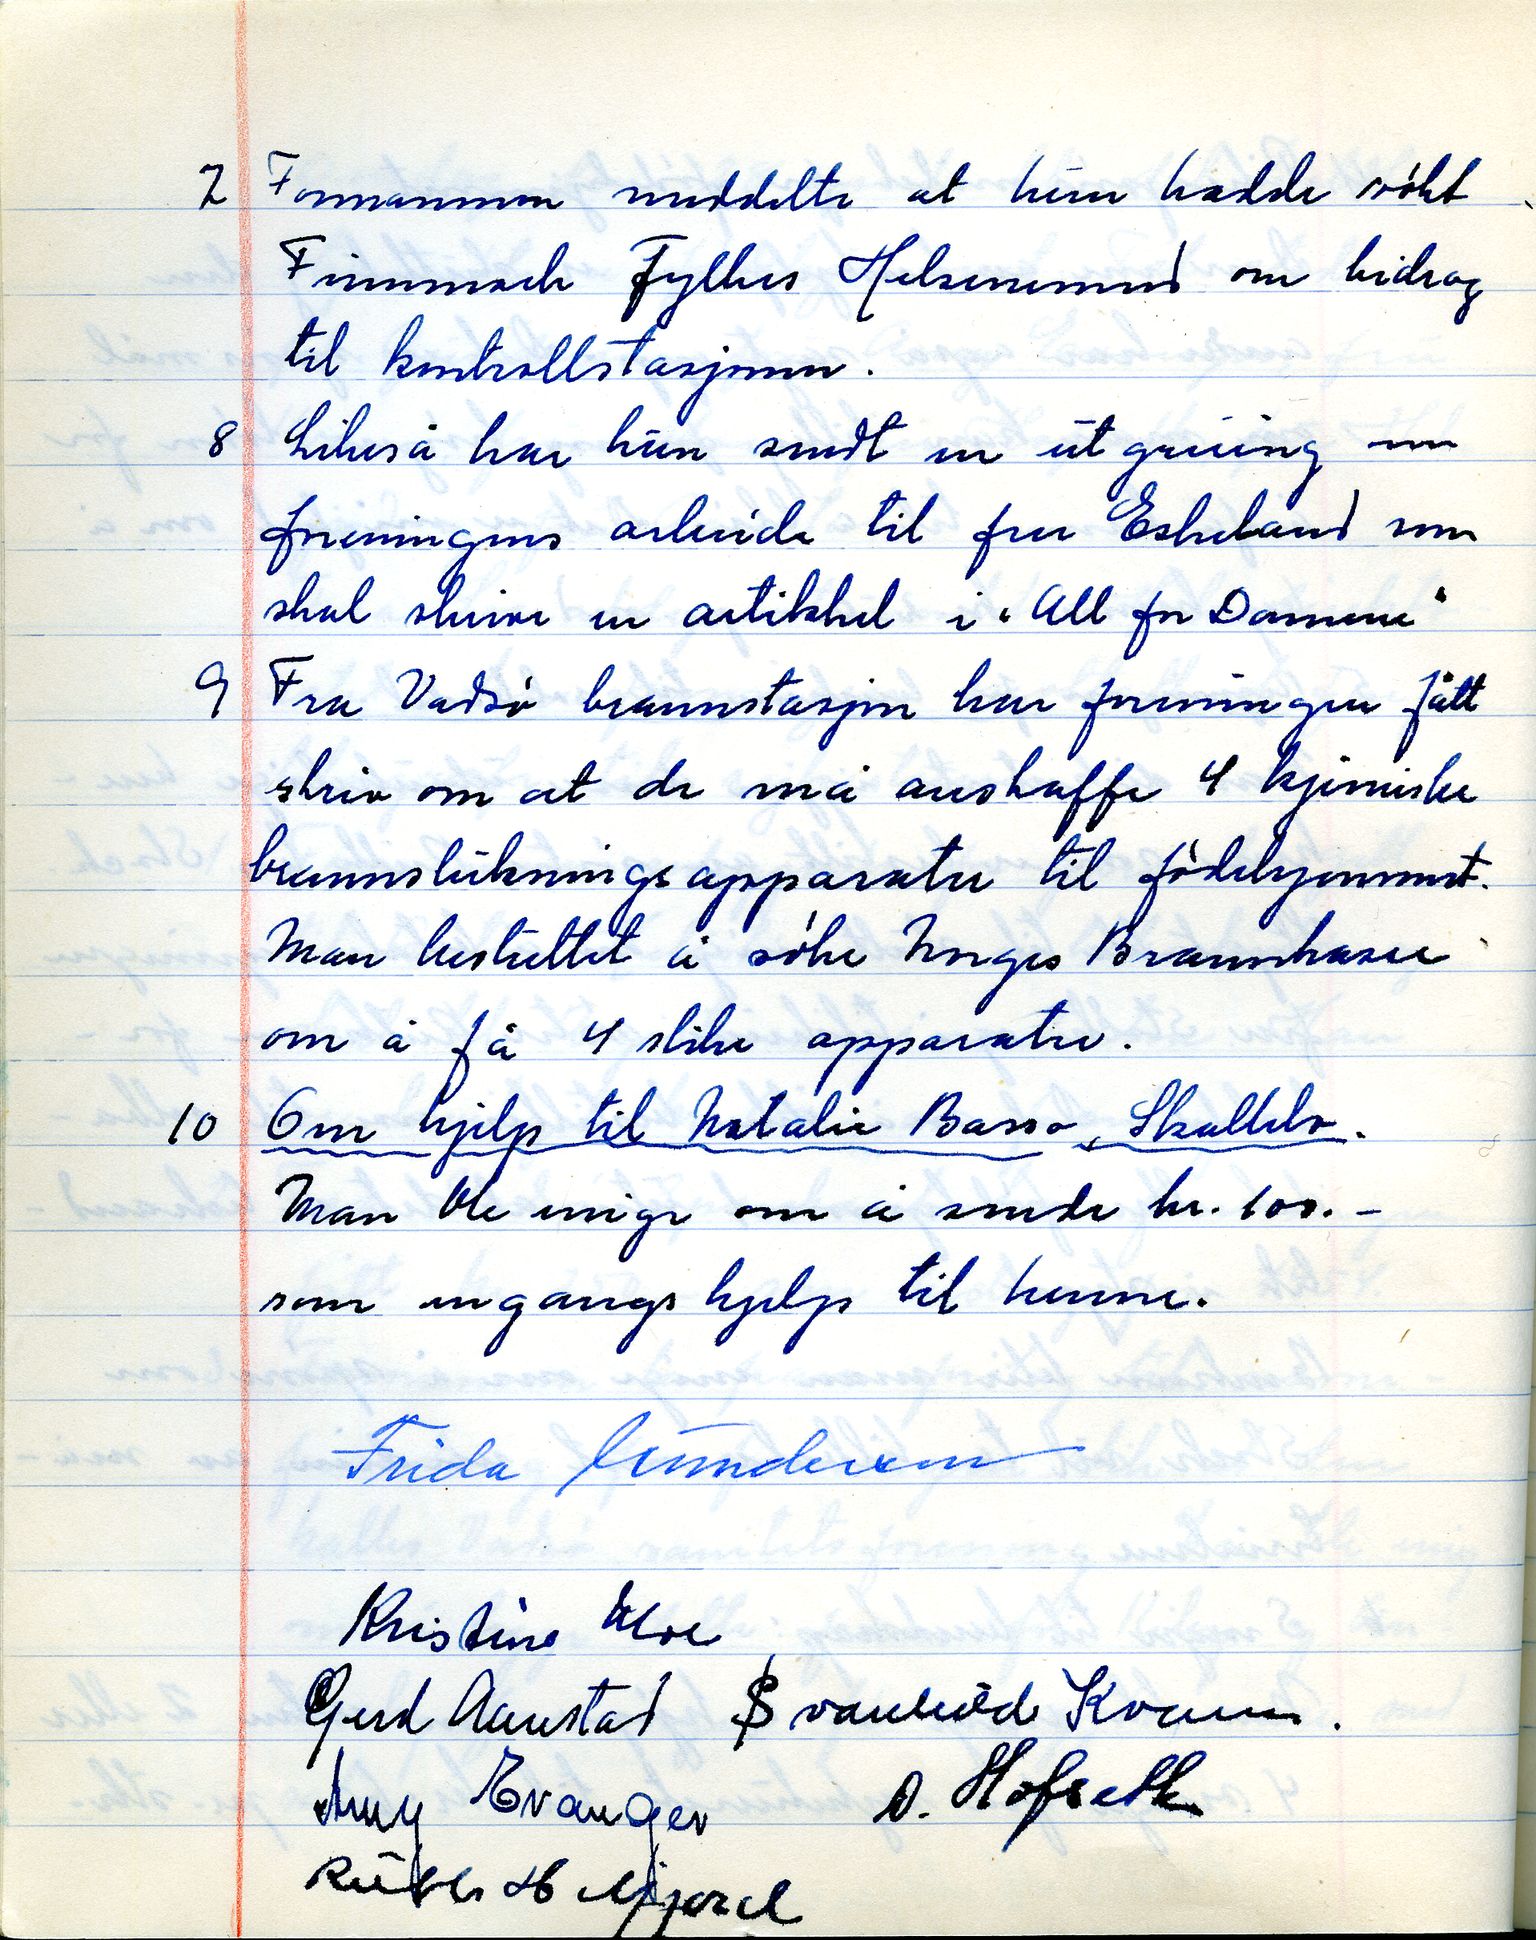 7 Formannen meddelte at hun hadde søkt
Finnmark Fylkes Helsenemnd om bidrag
til kontrollstasjonen.
8 Likeså har hun sendt en utgreiing om
foreningens arbeide til fru Eskeland som
skal skrive en artikkel i "All for Damene"
9 Fra Vadsø brannstasjon har foreningen fått
skriv om at de må anskaffe 4 kjemiske
brannslukningsapparater til fødehjemmet.
Man besluttet å søke Norges Brannkasse
om å få 4 slike apparater.
10 Om hjelp til Natalie Basso, Skallelv.
Man ble enige om å sende kr. 100.-
som engangshjelp til henne.
Frida Gundersen
Kristine Moe
Gerd Aarestad Svanhild Kvamm.
Amy Evanger O. Hofseth
Ruth H